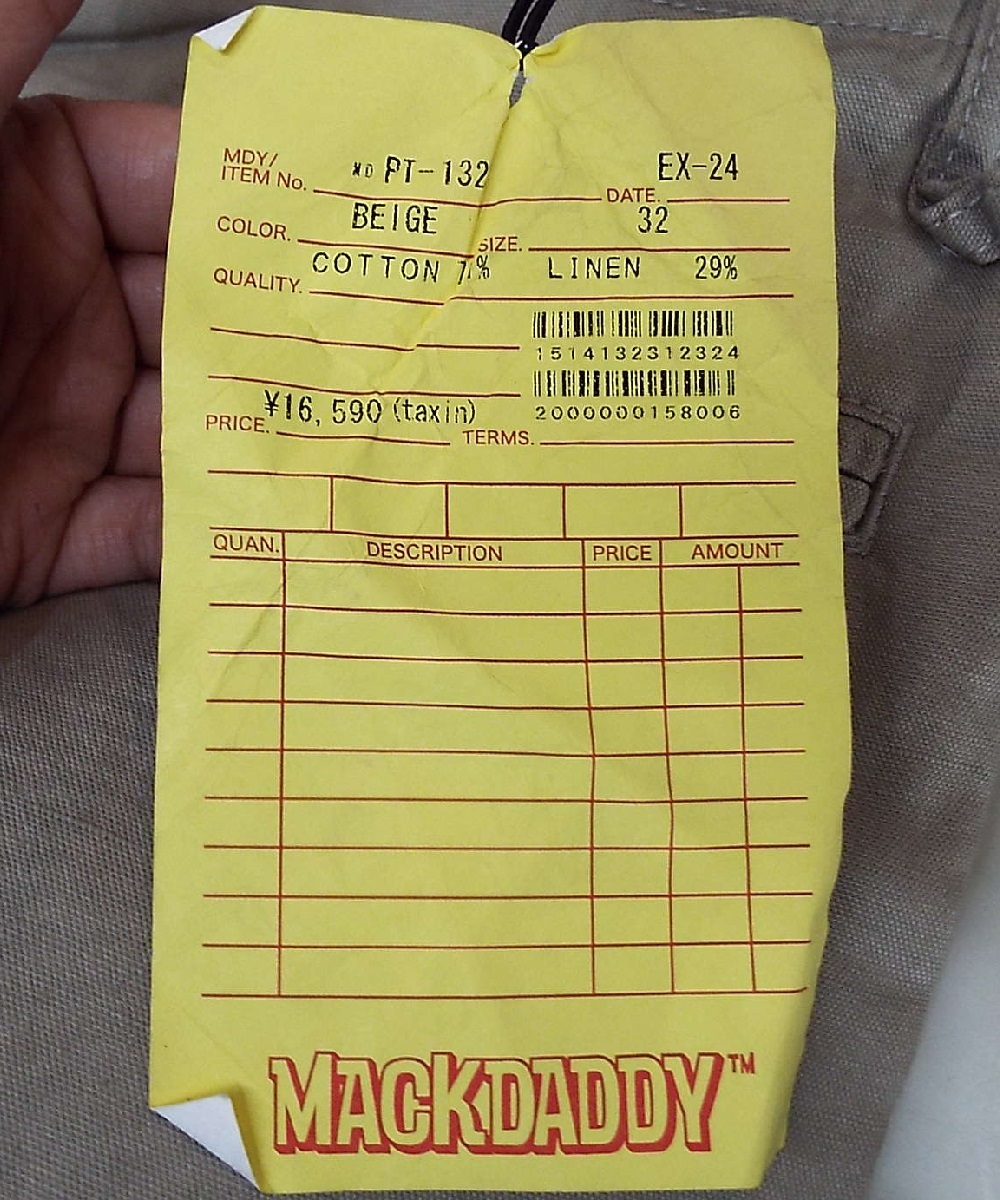 MDY/
ITEM No. MD PT-132 DATE. EX-24
COLOR. BEIGE SIZE. 32
QUALITY. COTTON 71% LINEN 29%
1514132312324
2000000158006
PRICE. ¥16,590 (taxin) TERMS.
QUAN. DESCRIPTION PRICE AMOUNT
MACKDADDY™